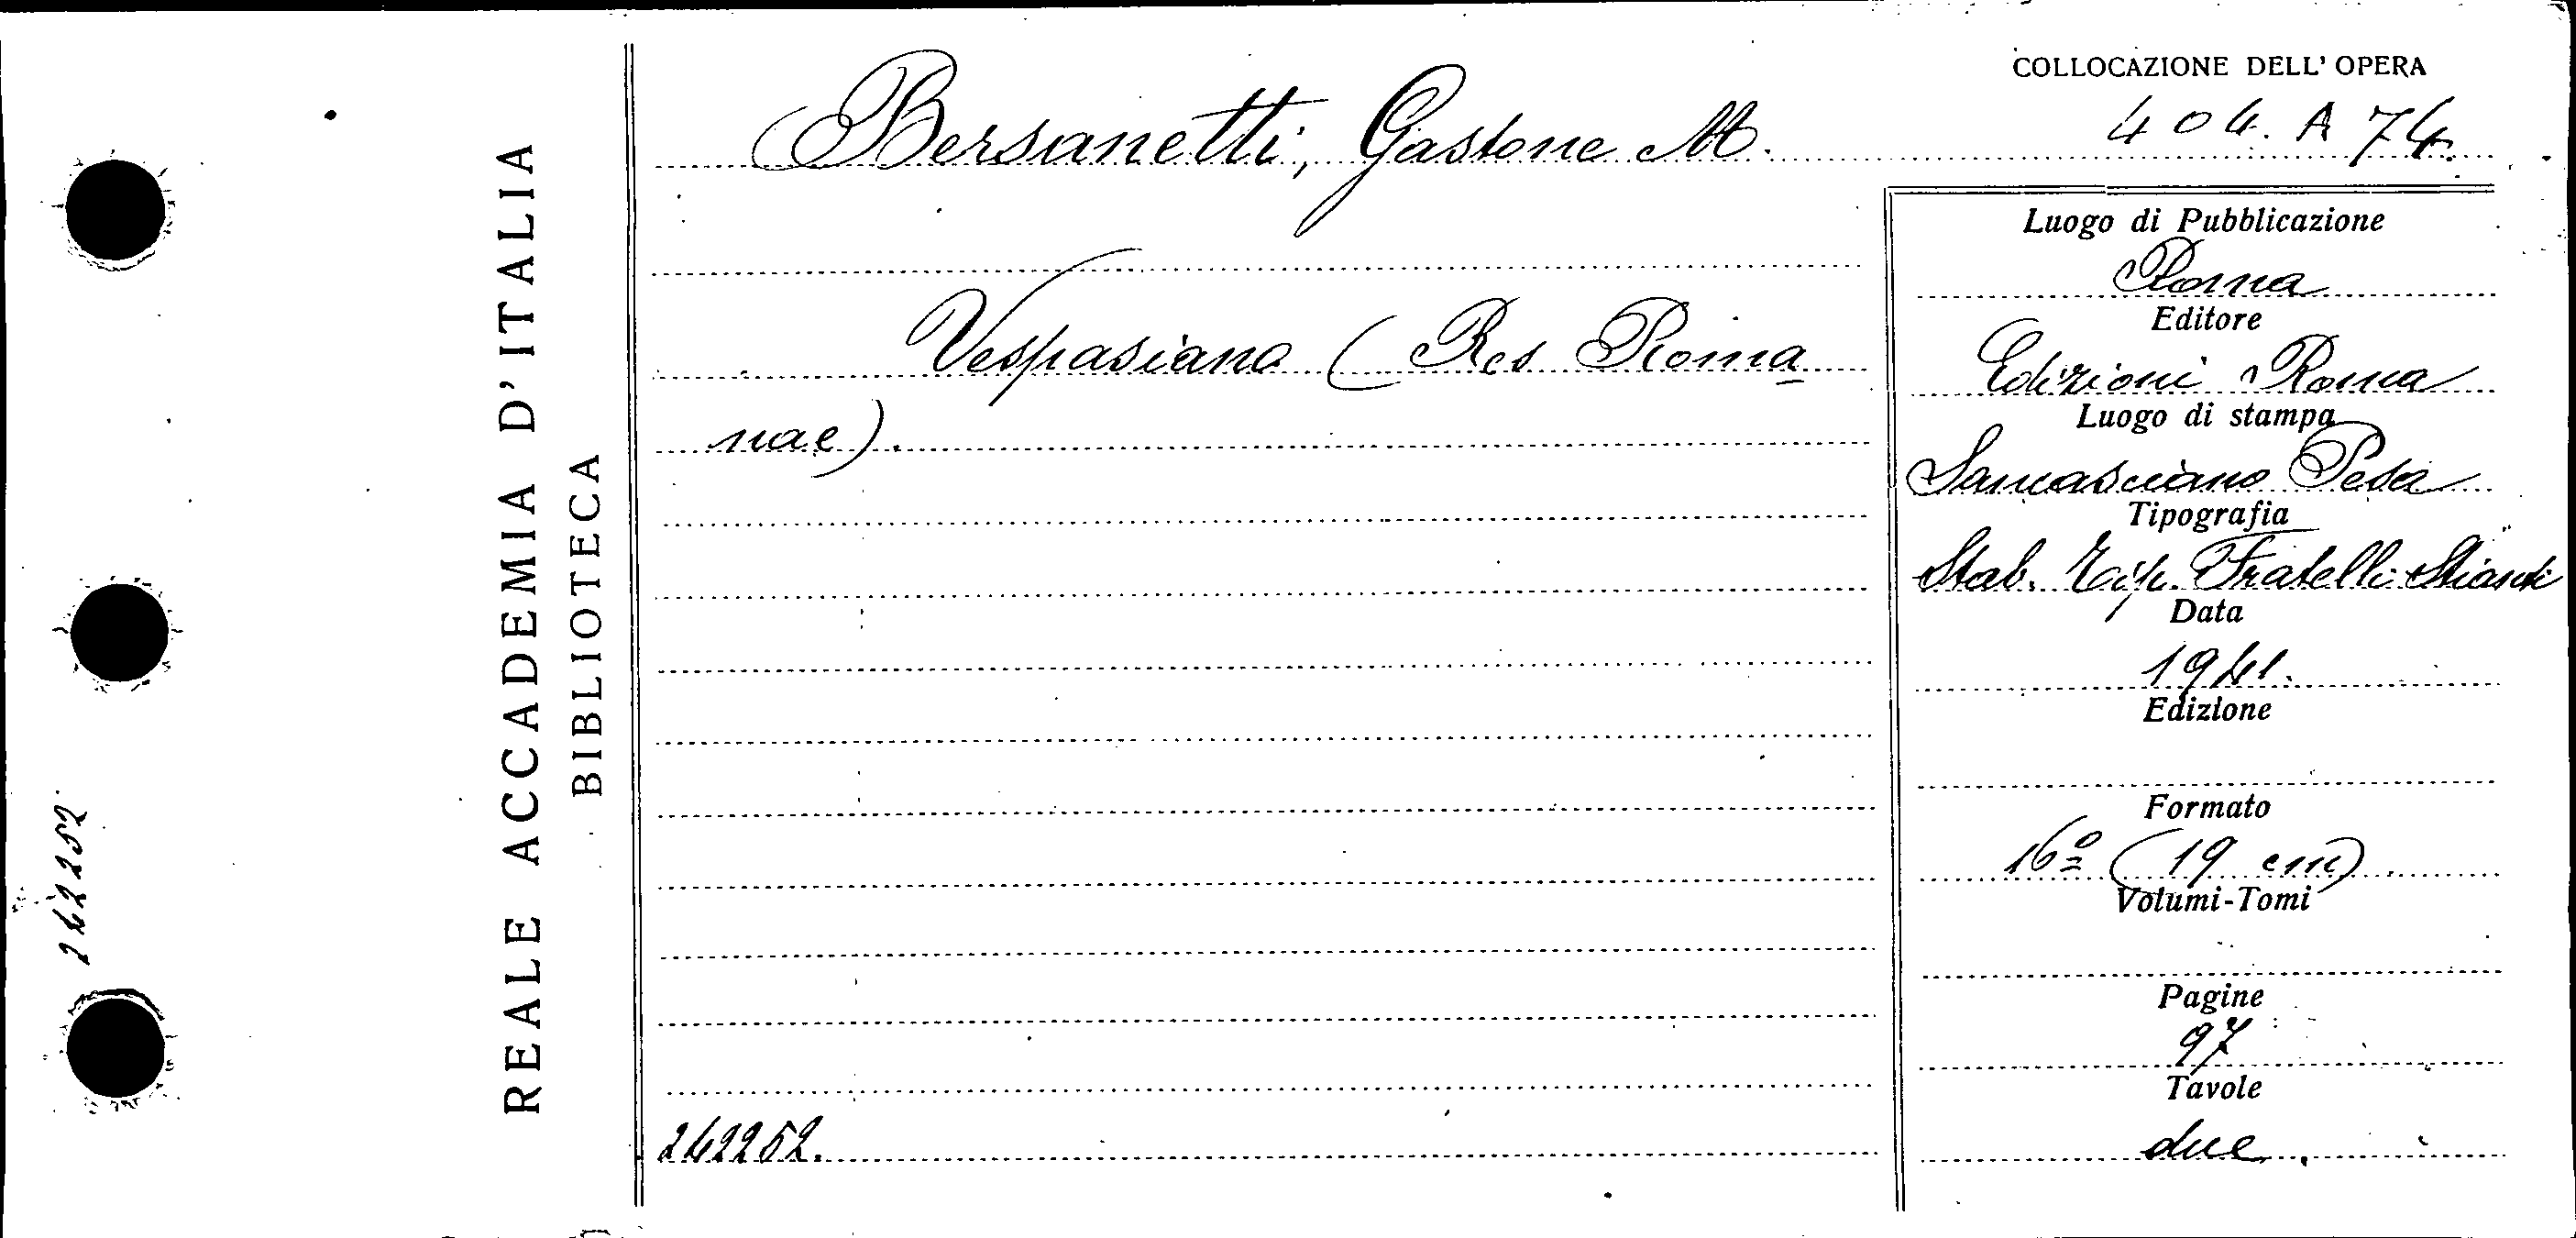 REALE ACCADEMIA D'ITALIA
BIBLIOTECA
242252
Bersanetti, Gastone M.
Vespasiano (Res Roma
nae).
242252.
COLLOCAZIONE DELL' OPERA
404. A 74.
Luogo di Pubblicazione
Roma
Editore
Edizioni Roma
Luogo di stampa
Sancasciano Pesa
Tipografia
Stab. Tip. Fratelli Stianti
Data
1941.
Edizione
Formato
16º (19 cm)
Volumi-Tomi
Pagine
97
Tavole
due.